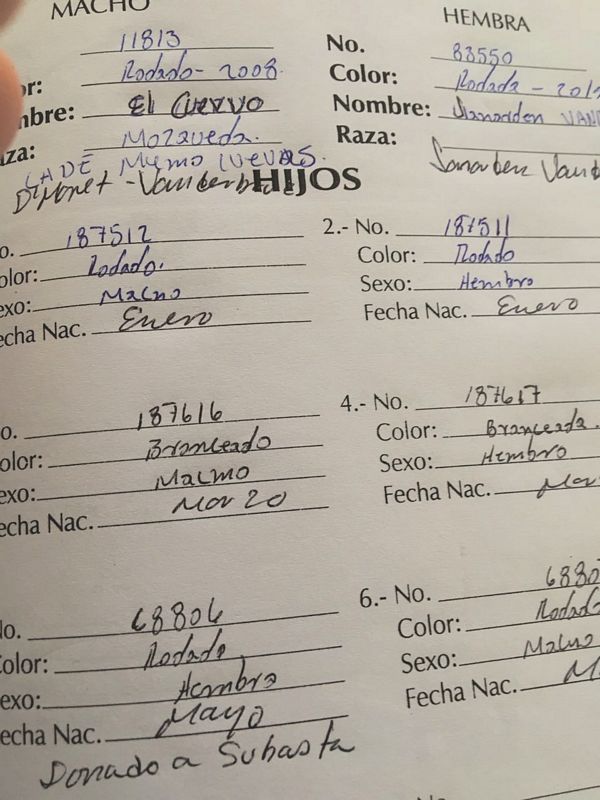 MACHO
11813
or: Rodado - 2008.
mbre: El Cuervo
aza: Mozaveda.
LADE Memo Cuevas.
HEMBRA
No. 83550
Color: Rodada - 201
Nombre: VAND
Raza:
HIJOS
o. 187512
olor: Rodado.
exo: Macho
echa Nac. Enero
2.- No. 187511
Color: Rodado
Sexo: Hembra
Fecha Nac. Enero
o. 187616
olor: Bronceado
exo: Macho
echa Nac. Mar 20
4.- No. 187617
Color: Bronceada.
Sexo: Hembra
Fecha Nac. Mar
No. 68806
Color: Rodado
exo: Hembra
echa Nac. Mayo
Donado a Subasta
6.- No. 6880
Color: Rodado
Sexo: Macho
Fecha Nac. M
No.